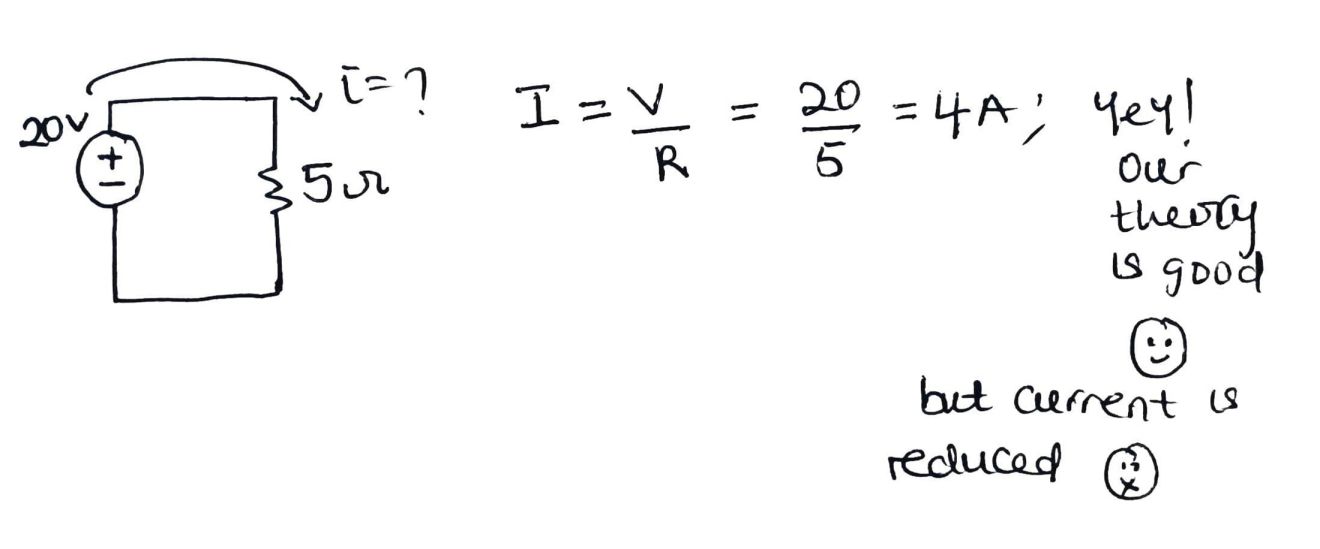 i = ?
20V
+
−
5Ω
I = V/R = 20/5 = 4A; Yey!
Our
theory
is good
but current is
reduced